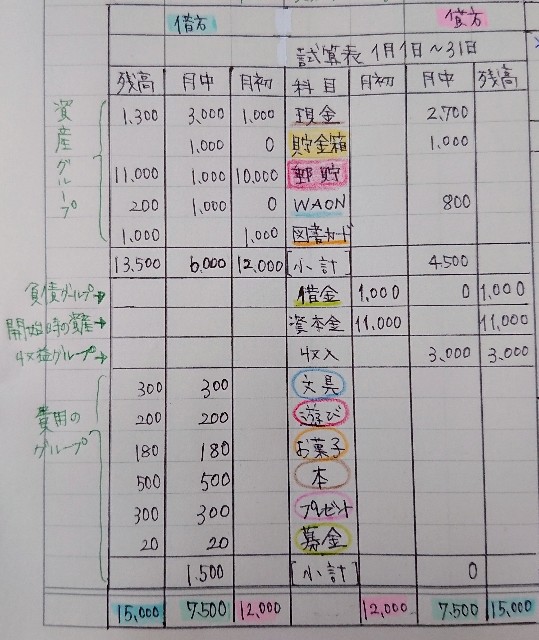 借方 貸方
試算表 1月1日～31日
残高 月中 月初 科目 月初 月中 残高
資産グループ
1,300 3,000 1,000 現金 2,700
1,000 0 貯金箱 1,000
11,000 1,000 10,000 郵貯
200 1,000 0 WAON 800
1,000 1,000 図書カード
13,500 6,000 12,000 [小計] 4,500
負債グループ→ 借金 1,000 0 1,000
開始時の資産→ 資本金 11,000 11,000
収益グループ→ 収入 3,000 3,000
費用のグループ
300 300 文具
200 200 遊び
180 180 お菓子
500 500 本
300 300 プレゼント
20 20 募金
1.500 [小計] 0
15,000 7,500 12,000 12,000 7,500 15,000